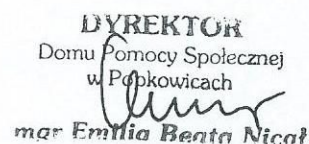 DYREKTOR
Domu Pomocy Społecznej
w Popkowicach
mgr Emilia Beata Nicał